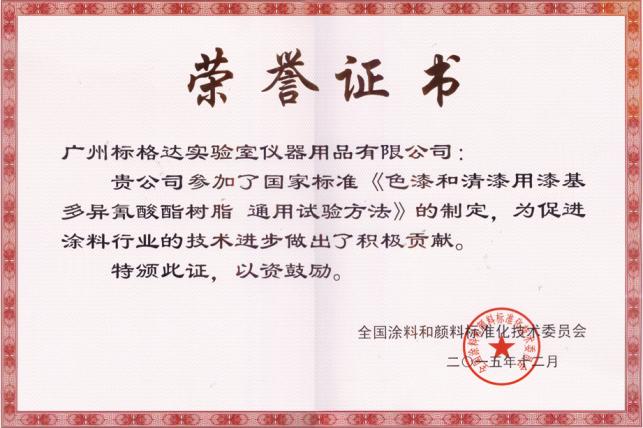 荣誉证书
广州标格达实验室仪器用品有限公司：
贵公司参加了国家标准《色漆和清漆用漆基
多异氰酸酯树脂 通用试验方法》的制定，为促进
涂料行业的技术进步做出了积极贡献。
特颁此证，以资鼓励。
全国涂料和颜料标准化技术委员会
二〇一五年十二月